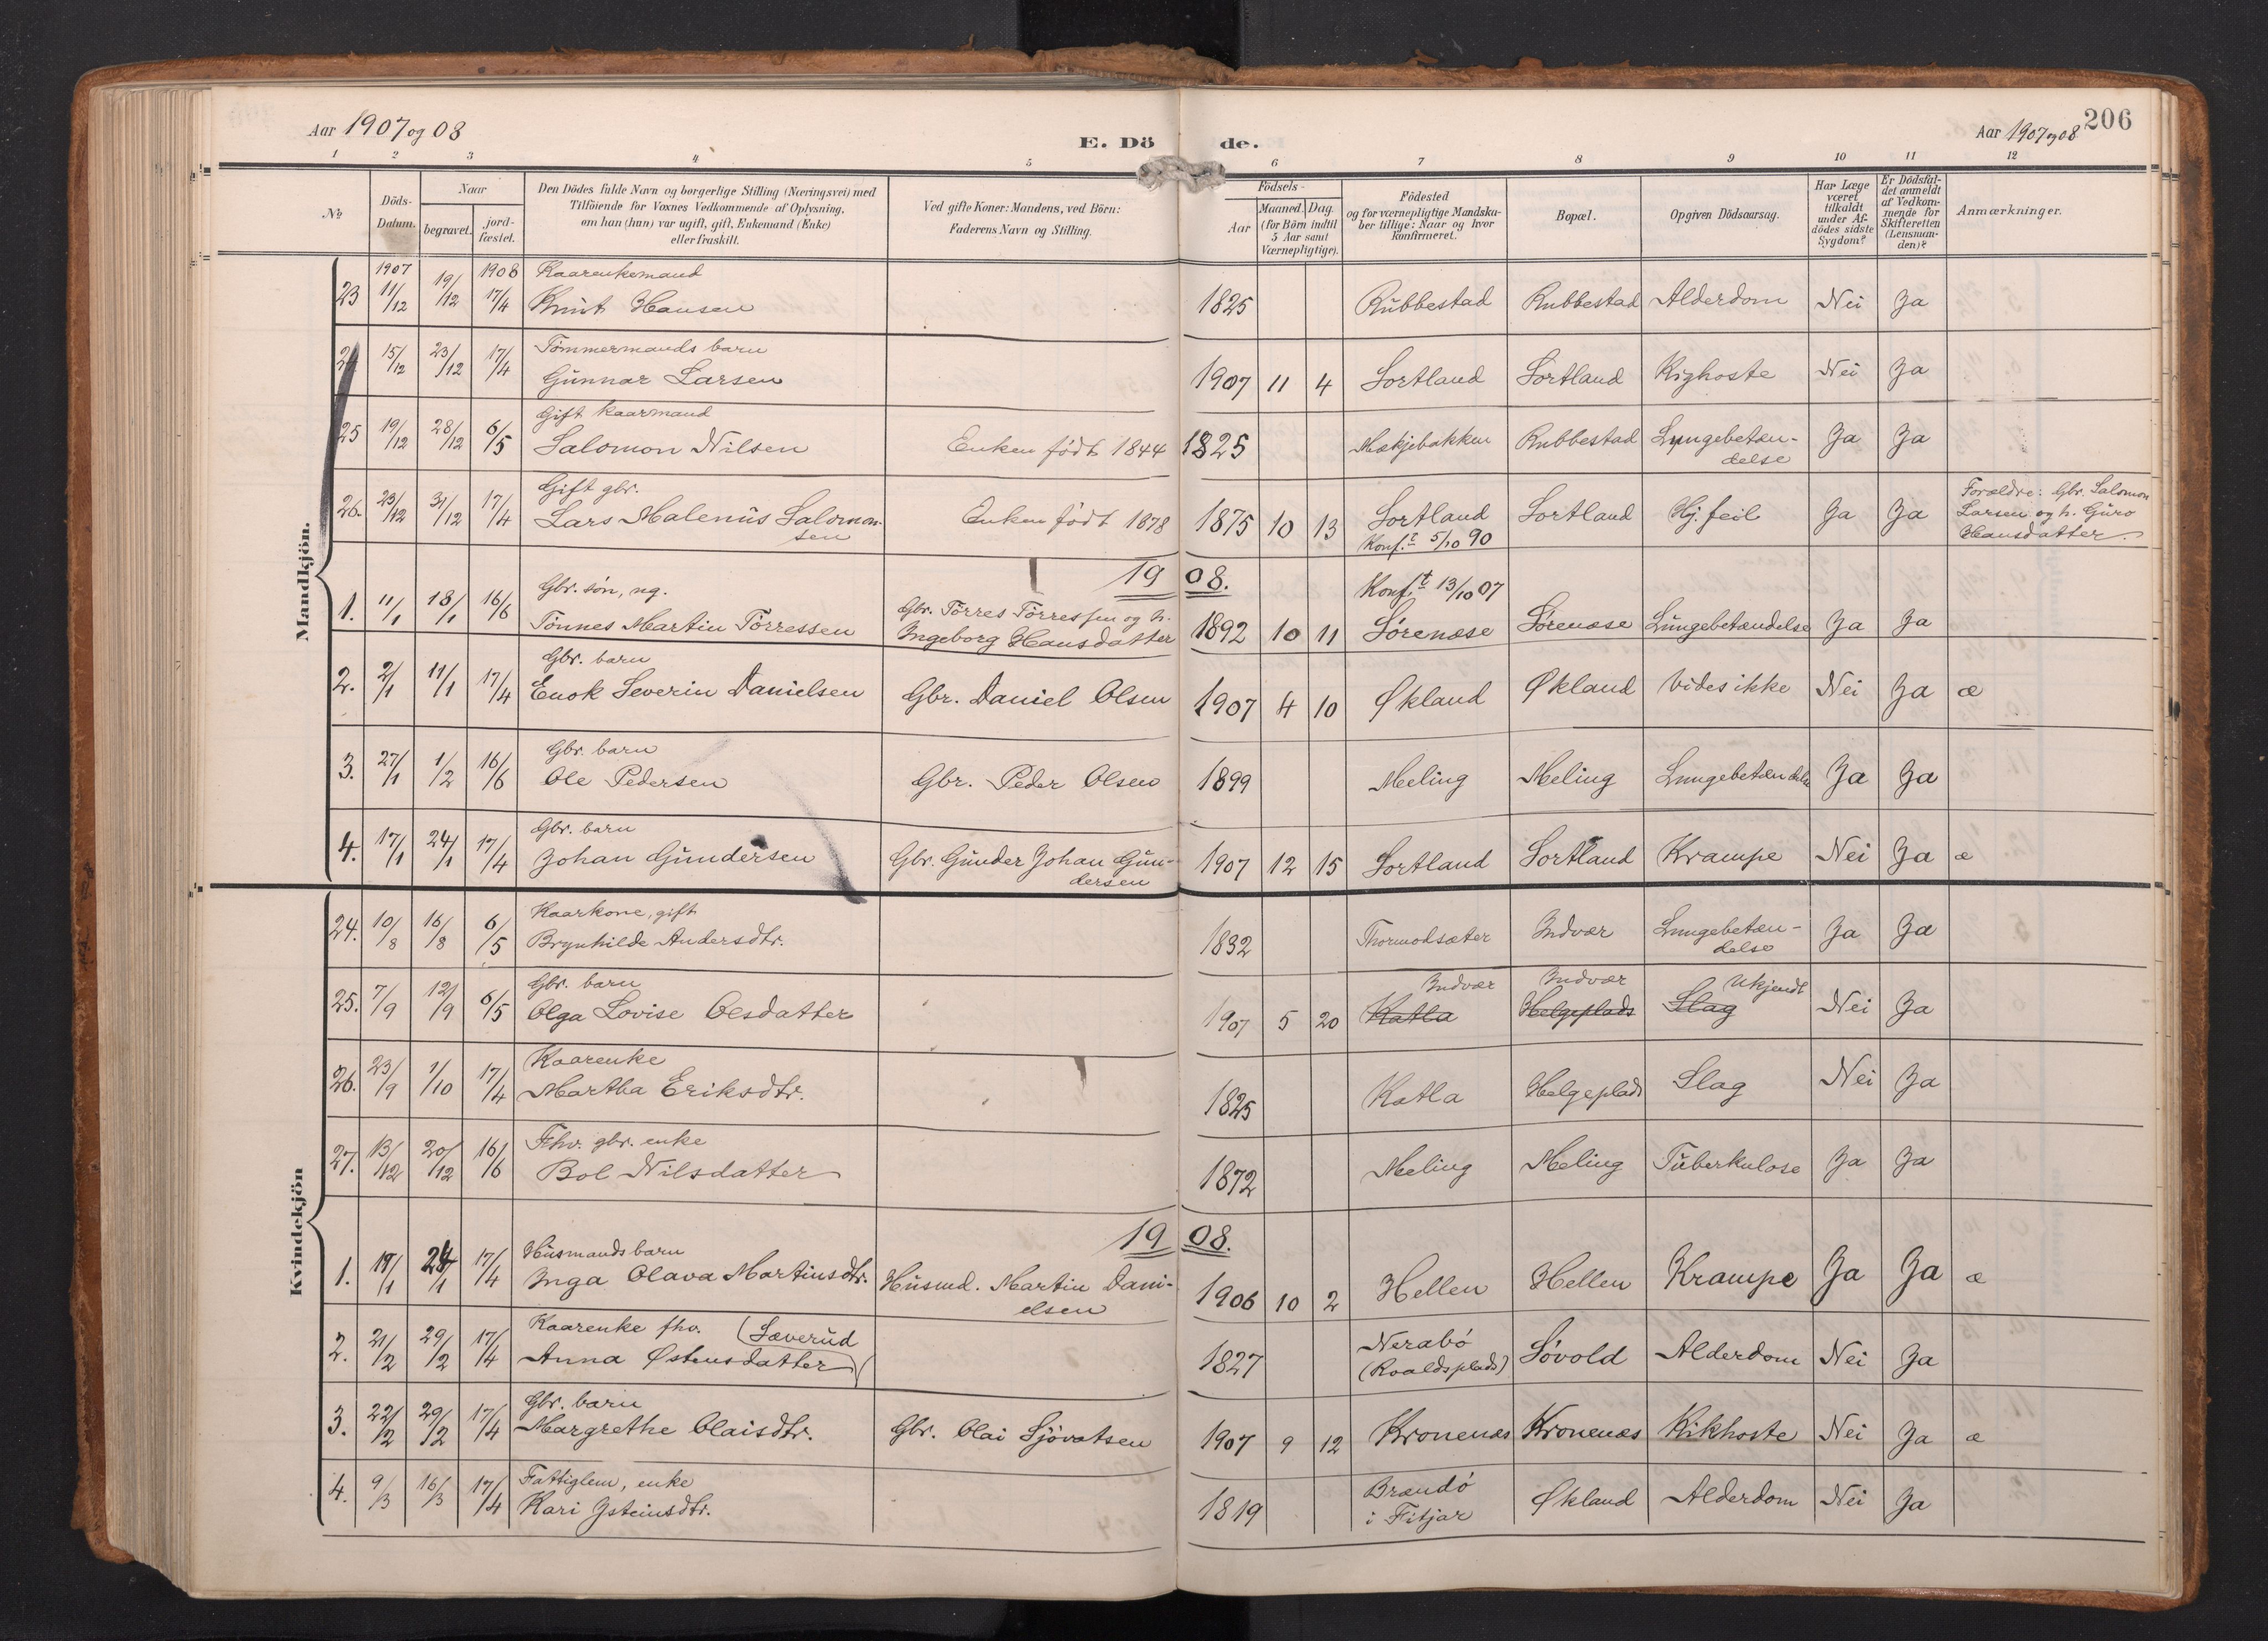 Aar 1907 og 08
E. Dö de.
Aar 1907 og 08
206
1 2 3 4 5 6 7 8 9 10 11 12
№
Döds-
Datum.
Naar
begravet.
jord-
fæstet.
Den Dödes fulde Navn og borgerlige Stilling (Næringsvei) med
Tilföiende for Voxnes Vedkommende af Oplysning,
om han (hun) var ugift, gift, Enkemand (Enke)
eller fraskilt.
Ved gifte Koner: Mandens, ved Börn:
Faderens Navn og Stilling.
Födsels-
Aar
Maaned. Dag.
(for Börn indtil
5 Aar samt
Værnepligtige).
Födested
og for værnepligtige Mandska-
ber tillige: Naar og hvor
konfirmeret.
Bopæl.
Opgiven Dödsaarsag.
Har Læge
været
tilkaldt
under Af-
dödes sidste
Sygdom?
Er Dödsfal-
det anmeldt
af Vedkom-
mende for
Skifteretten
(Lensman-
den)?
Anmærkninger.
Mandkjön.
1907 1908 Kaarenkemand
23 11/12 19/12 17/4 Knut Hansen 1825 Rubbestad Rubbestad Alderdom Nei Ja
Tømmermands barn
24 15/12 23/12 17/4 Gunnar Larsen 1907 11 4 Sortland Sortland Kighoste Nei Ja
Gift kaarmand
25 19/12 28/12 6/5 Salomon Nilsen Enken født 1844 1825 Mækjebakken Rubbestad Lungebetæn-
delse Ja Ja
Gift gbr.
26. 23/12 31/12 17/4 Lars Malenius Salomon-
sen Enken født 1878 1875 10 13 Sortland
Konf. 5/10 90 Sortland Hj. feil Ja Ja Forældre: Gbr. Salomon
Larsen og h. Guro
Hansdatter.
19 08.
Gbr. søn, ug. Konf.t 13/10 07
1. 11/1 18/1 16/6 Tönnes Martin Törressen Gbr. Törres Törressen og h.
Ingeborg Hansdatter 1892 10 11 Sørenæse Sørenæse Lungebetændelse Ja Ja
Gbr. barn
2. 2/1 11/1 17/4 Enok Severin Danielsen Gbr. Daniel Olsen 1907 4 10 Økland Økland Vides ikke Nei Ja æ
Gbr. barn
3. 27/1 1/2 16/6 Ole Pedersen Gbr. Peder Olsen 1899 Meling Meling Lungebetændelse Ja Ja
Gbr. barn
4. 17/1 24/1 17/4 Johan Gundersen Gbr. Gunder Johan Gun-
dersen 1907 12 15 Sortland Sortland Krampe Nei Ja æ
Kvindekjön
Kaarkone, gift
24. 10/8 16/8 6/5 Brynhilde Andersdtr. 1832 Thormodsæter Indvær Lungebetæn-
delse Ja Ja
Gbr. barn Indvær Indvær Ukjendt
25. 7/9 12/9 6/5 Olga Lovise Olsdatter 1907 5 20 Katla Helgeplads Slag Nei Ja
Kaarenke
26. 23/9 1/10 17/4 Martha Eriksdtr. 1825 Katla Helgeplads Slag Nei Ja
Fhv. gbr. enke
27. 13/12 20/12 16/6 Bol Nilsdatter 1872 Meling Meling Tuberkulose Ja Ja
19 08.
Husmandsbarn
1. 24/1 17/4 Inga Olava Martinsdtr. Husmd. Martin Dani-
elsen 1906 10 2 Hellen Hellen Krampe Ja Ja æ
Kaarenke fhv. (Sæverud
2. 21/2 29/2 17/4 Anna Østensdatter 1827 Nerabö
(Roaldsplads) Søvold Alderdom Nei Ja
Gbr. barn
3. 22/2 29/2 17/4 Margrethe Olaisdtr. Gbr. Olai Sjövatsen 1907 9 12 Kronenæs Kronenæs Kikhoste Nei Ja æ
Fattiglem, enke
4. 9/3 16/3 17/4 Kari Isteinsdtr. 1819 Brandö
i Fitjar Økland Alderdom Nei Ja